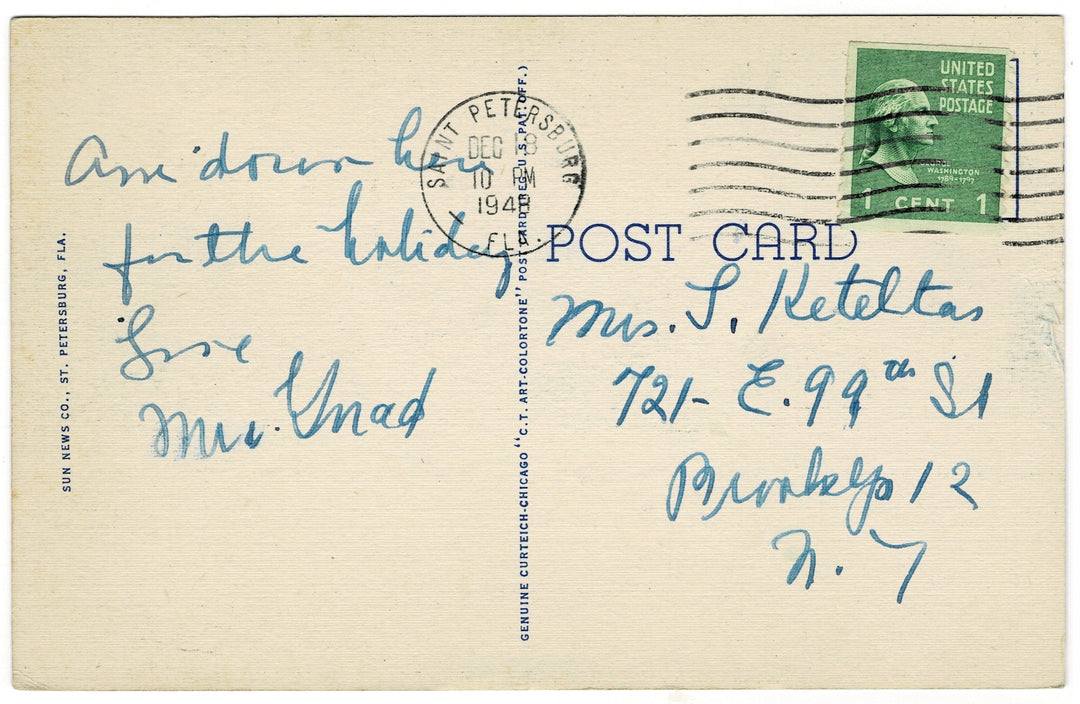 Am down here
for the holiday
Love
Mrs. Gnad
SAINT PETERSBURG
DEC 18
10 PM
1948
FLA.
UNITED
STATES
POSTAGE
WASHINGTON
1789-1797
1 CENT 1
POST CARD
Mrs. S. Keteltas
721- E. 99th St
Brooklyn 12
N. Y
SUN NEWS CO., ST. PETERSBURG, FLA.
GENUINE CURTEICH-CHICAGO "C.T. ART-COLORTONE" POST CARD (REG. U.S. PAT. OFF.)